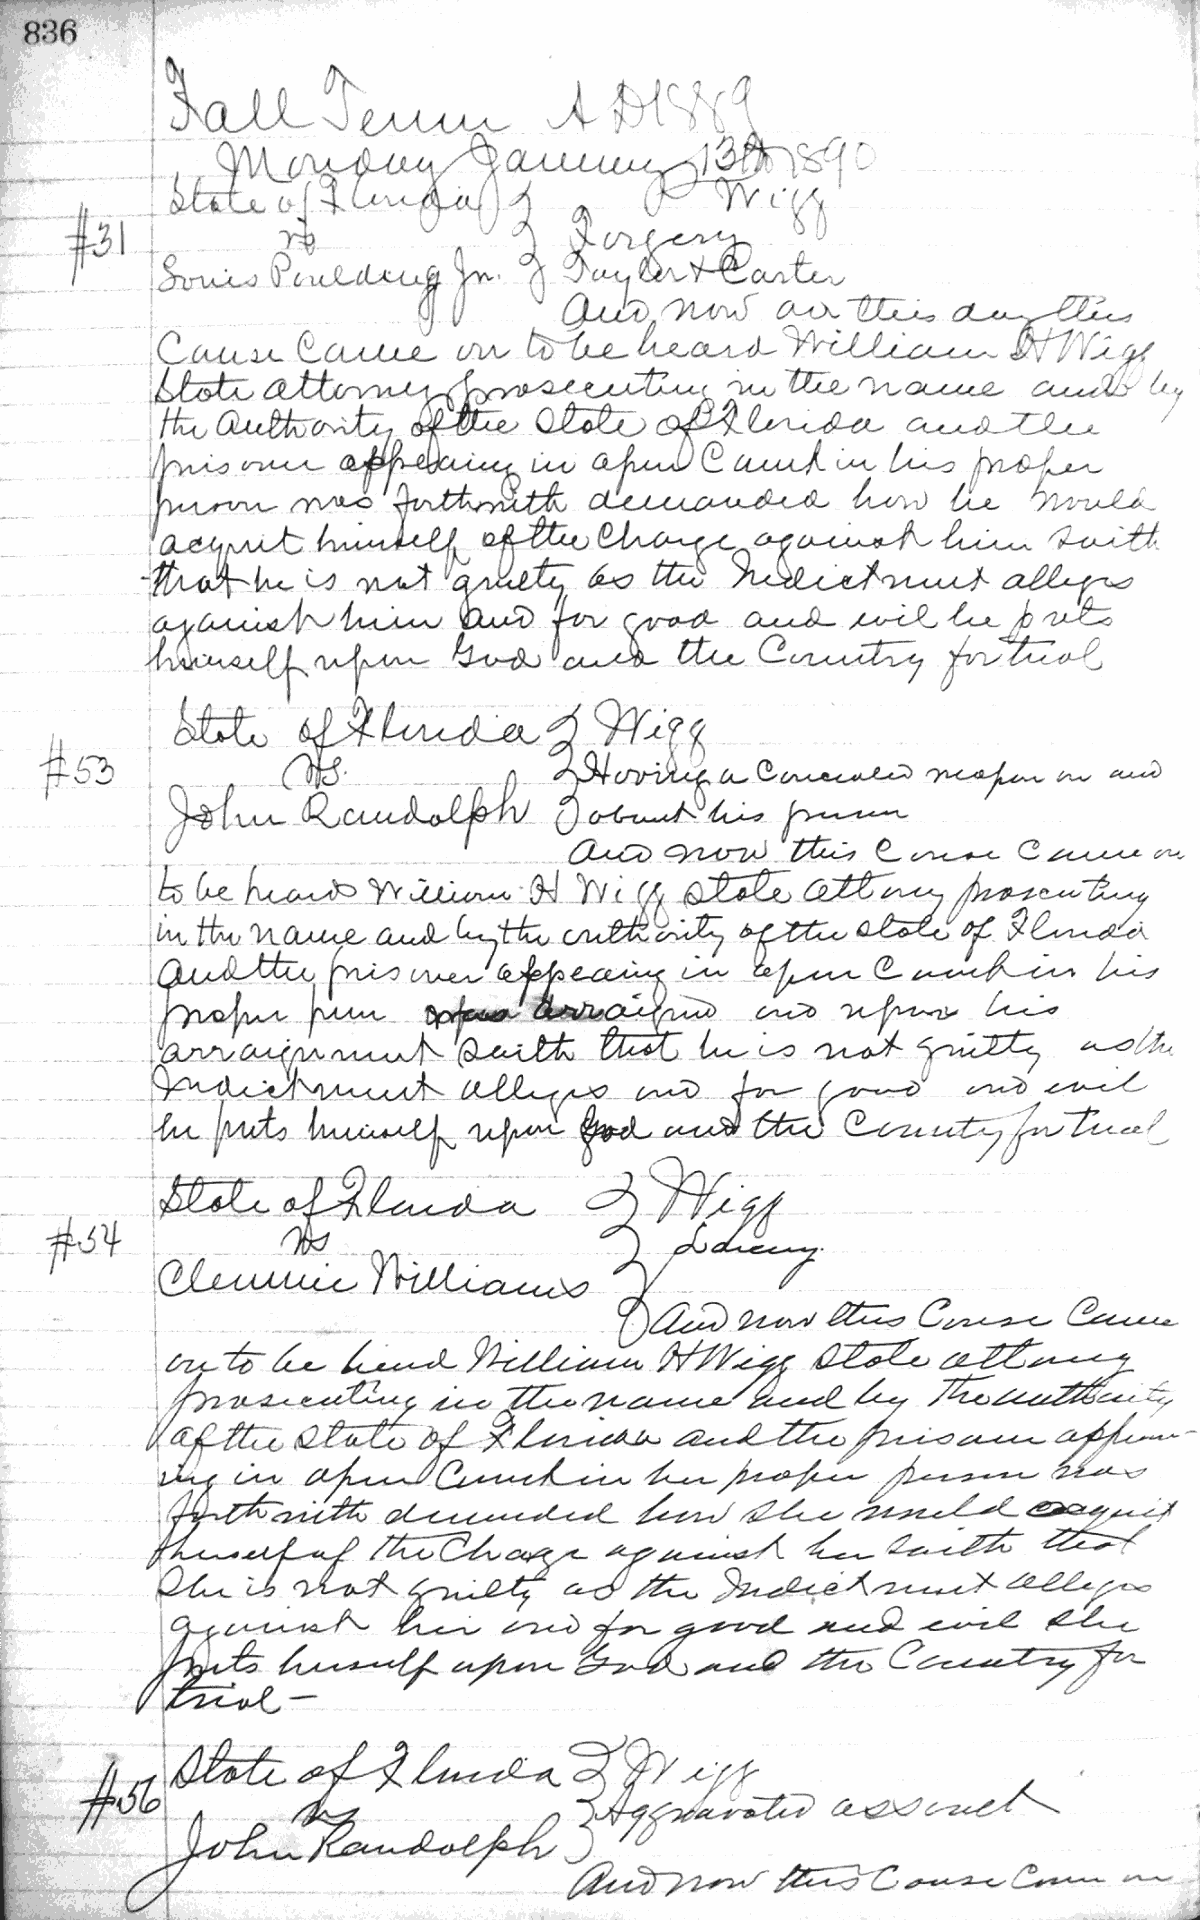 836
Fall Term A D 1889
Monday January 13th 1890
State of Florida } Wigg
#31 vs } Forgery
Louis Poulding Jr. } Taylor & Carter
And now on this day this
Cause Came on to be heard William H Wigg
State attorney prosecuting in the name and by
the Authority of the State of Florida and the
prisoner appearing in open Court in his proper
person was forthwith demanded how he would
acquit himself of the Charge against him saith
that he is not guilty as the Indictment alleges
against him and for good and evil he puts
himself upon God and the Country for trial
State of Florida } Wigg
#53 vs. } Having a Concealed weapon on and
John Randolph } about his person
And now this Cause Came on
to be heard William H Wigg State attorney prosecuting
in the name and by the authority of the State of Florida
and the prisoner appearing in open Court in his
proper person was arraigned and upon his
arraignment saith that he is not guilty as the
Indictment alleges and for good and evil
he puts himself upon God and the Country for trial
State of Florida } Wigg
#54 vs } Larceny.
Clemmie Williams }
And now this Cause Came
on to be heard William H Wigg State attorney
prosecuting in the name and by the authority
of the State of Florida and the prisoner appear-
ing in open Court in her proper person was
forthwith demanded how she would acquit
herself of the Charge against her saith that
She is not guilty as the Indictment alleges
against her and for good and evil she
puts herself upon God and the Country for
trial —
State of Florida } Wigg
#56 vs } Aggravated assault
John Randolph }
And now this Cause Came on